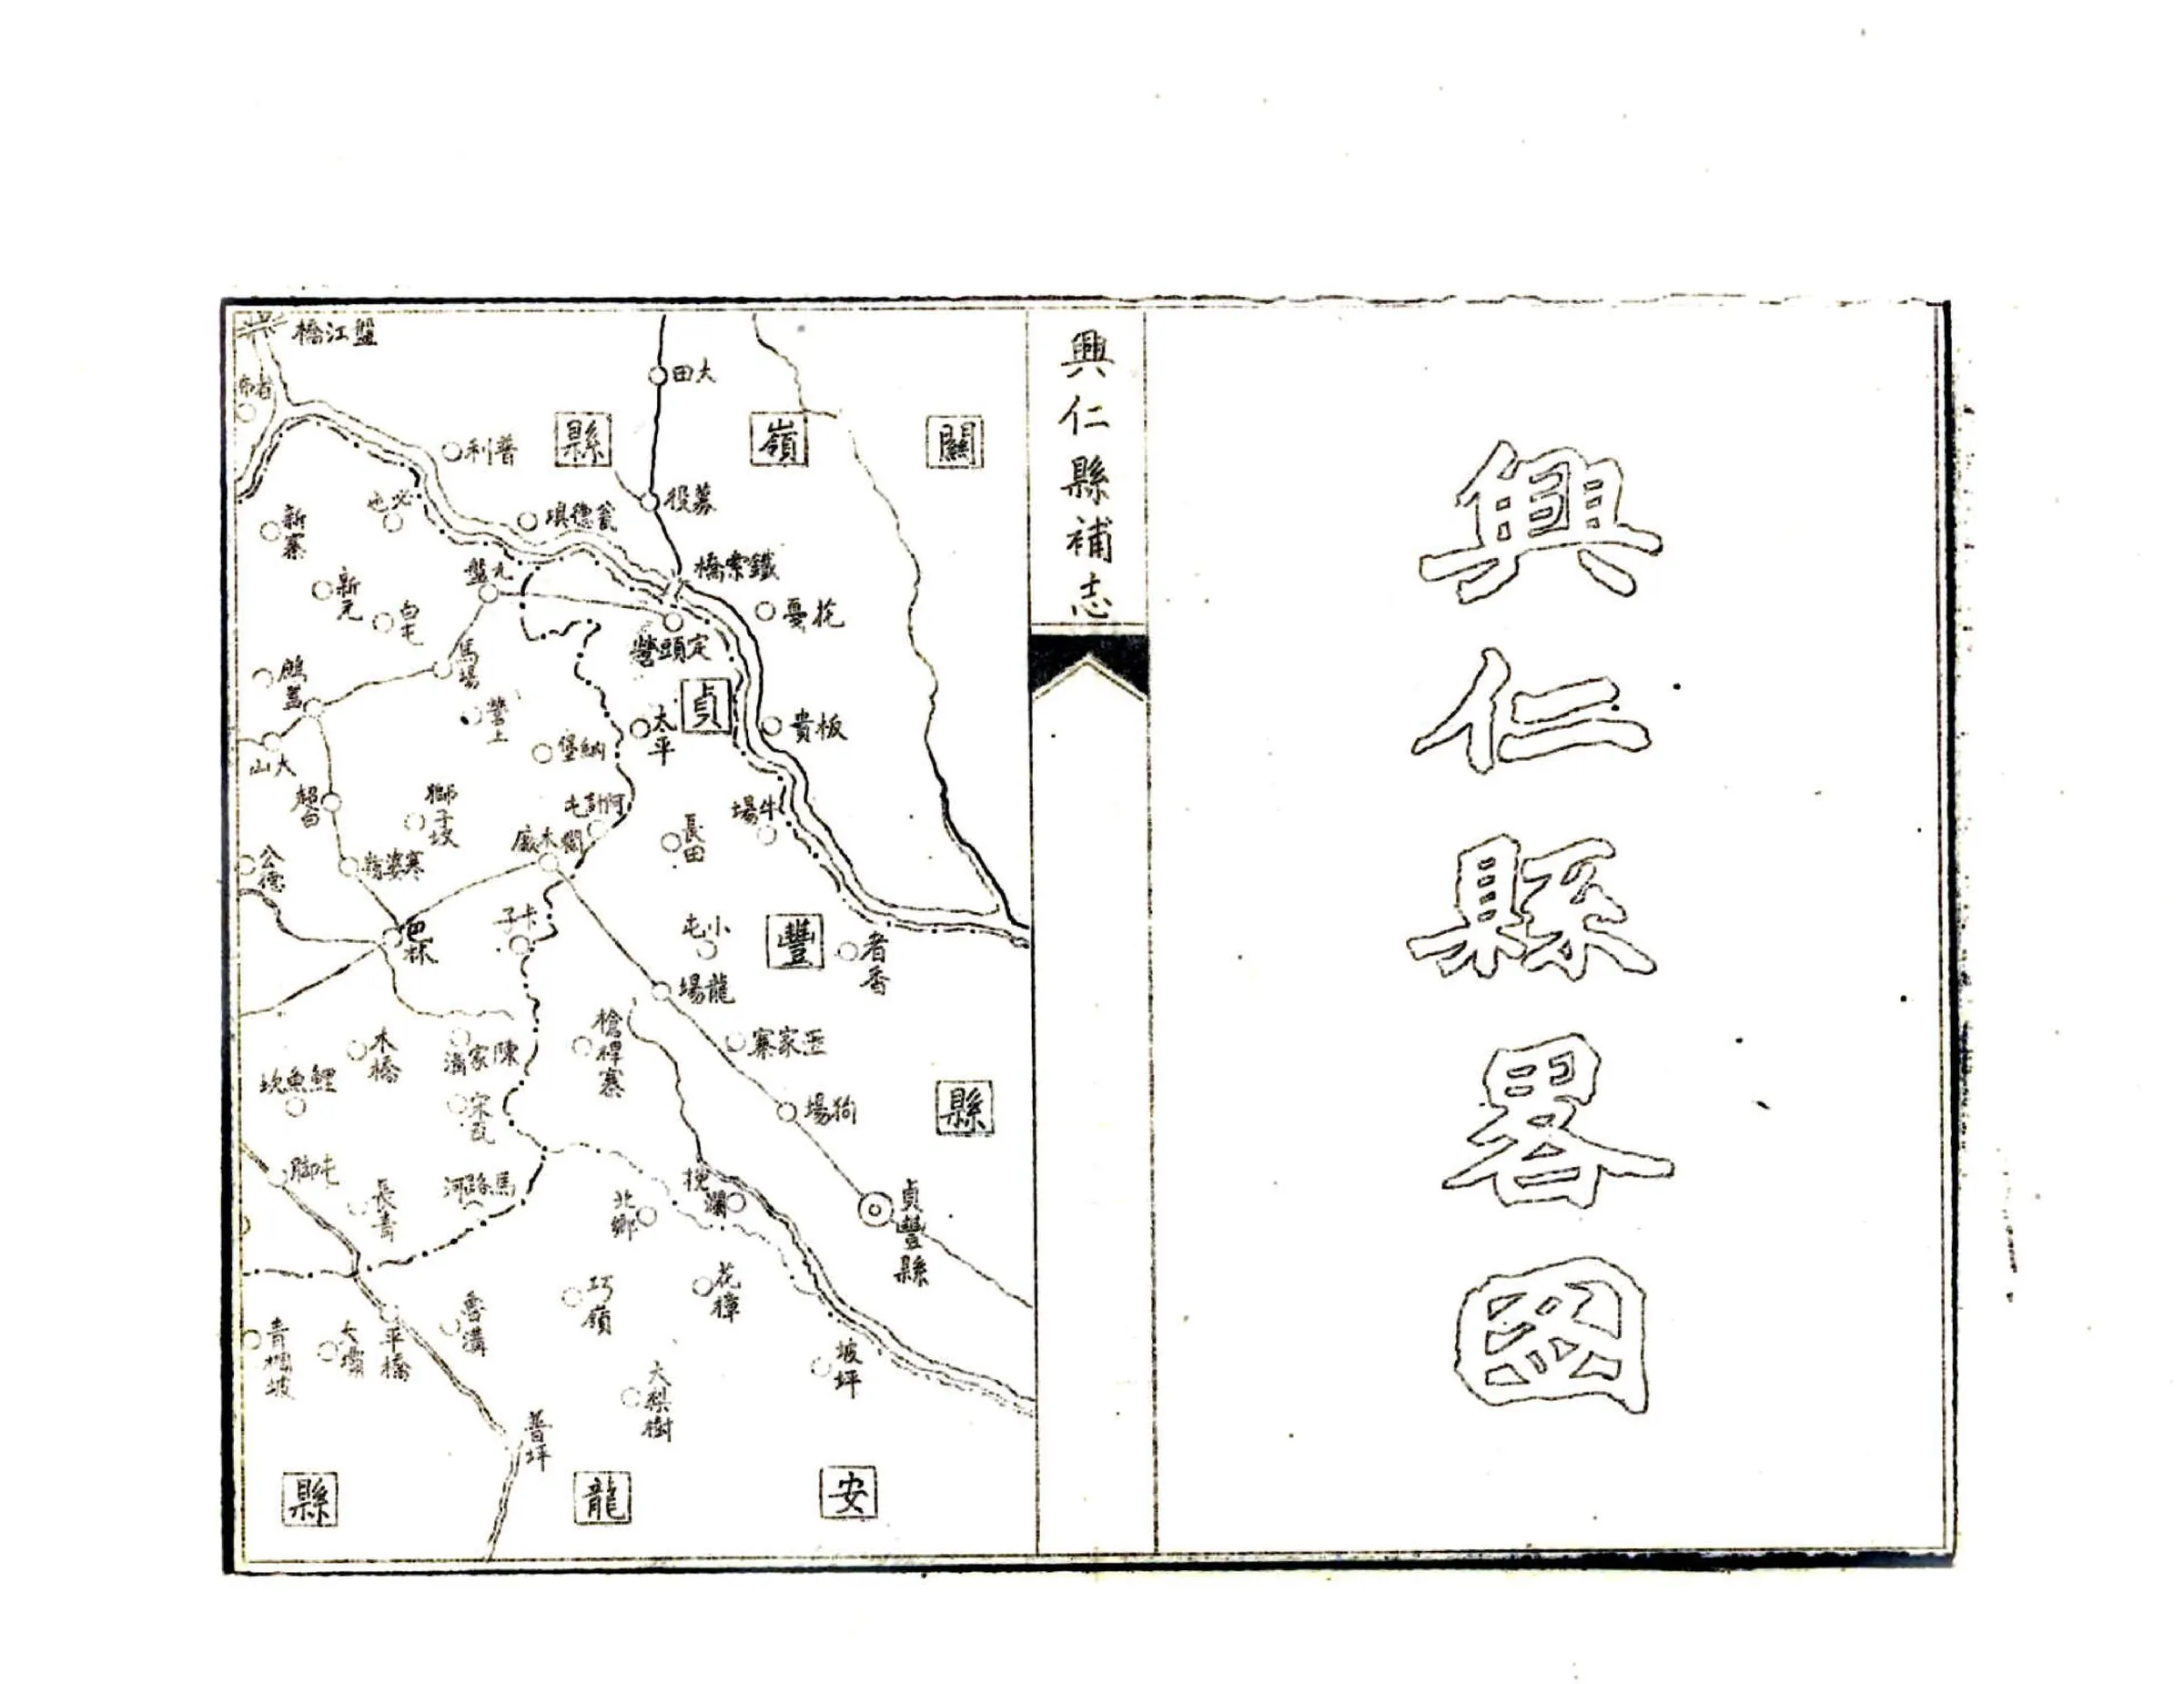 興仁縣畧圖
興仁縣補志
關嶺縣
貞豐縣
安龍縣
盤江橋
大田
普利
募役
翁德填
鐵索橋
花戞
定頭營
板貴
太平
牛場
長田
小屯
者香
龍場
槍桿寨
王家寨
狗場
貞豐縣
挽瀾
北鄉
花獐
巧嶺
坡坪
大梨樹
普坪
魯溝
平橋
大壩
必屯
九盤
新寨
新元
白屯
馬場
營上
納堡
阿計屯
闌木廠
卡子
大山
獅子坟
寨婆嶺
公德
巴林
木橋
陳家灣
鯉魚坎
宋瓦
屯脚
長青
馬路河